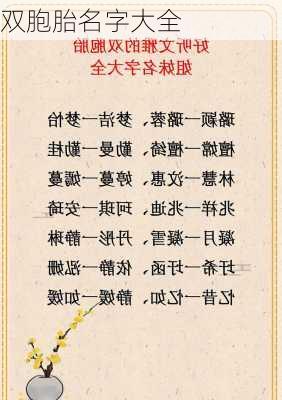 双胞胎名字大全
好听文雅的双胞胎
姐妹名字大全
璐颖一璐蓉、梦洁一梦怡
檀嫦一檀绮、勤曼一勤桂
林慧一汶惠、婷蔓一嫣蔓
兆祥一兆迪、珂琪一安琦
凝月一凝雪、丹彤一静琳
圩希一圩函、依静一泓姗
忆昔一忆如、静媛一如媛